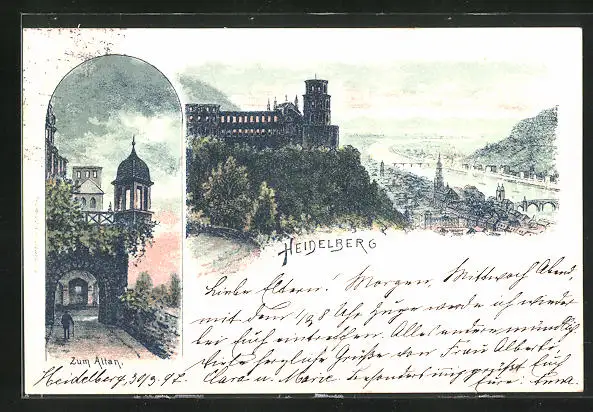 HEIDELBERG
Liebe Eltern! Morgen, Mittwoch Abend
mit dem 1/2 8 Uhr Zuge werde ich wieder
bei Euch eintreffen. Alles andere mündlich
herzliche Grüße von Frau Albert,
Clara u. Marie. Besonders grüßt Euch
Eure Anna.
Zum Altan.
Heidelberg, 30/3. 97.